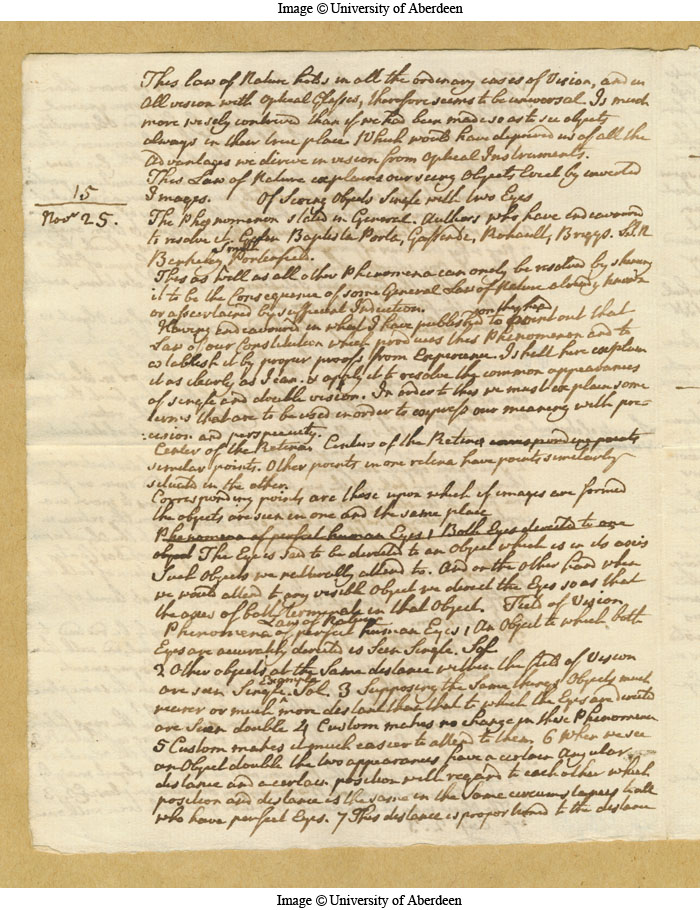 Image © University of Aberdeen
This law of Nature holds in all the ordinary cases of Vision, and in
all vision with optical Glasses, therefore seems to be universal. Is much
more wisely contrived than if we had been made so as to see objects
always in their true place Which would have deprived us of all the
Advantages we derive in vision from Optical Instruments.
This Law of Nature explains our seeing Objects Erect by inverted
Images. Of Seeing Objects Single with two Eyes
15
Novr 25.
The Phenomenon stated in General. Authors who have endeavoured
to resolve it. Baptista Porta, Gassendi, Rohault, Briggs. Sr I. N.
Smith
Berkeley Porterfield.
This as well as all other Phenomena can only be resolved by shewing
it to be the Consequence of some General Law of Nature already known
or ascertained by sufficient Induction.
on this head
Having Endeavoured in what I have published to point out that
Law of our Constitution which produces this Phenomenon and to
establish it by proper proofs from Experience. I shall here explain
it as clearly as I can. & apply it to resolve the common appearances
of single and double vision. In order to this we must explain some
terms that are to be used in order to express our meaning with pre-
cision and perspicuity.
Center of the Retina. Centers of the Retinas corresponding points
similar points. Other points in one retina have points similarly
situated in the other.
Corresponding points are those upon which if images are formed
the objects are seen in one and the same place
Phenomena of perfect human Eyes 1 Both Eyes directed to one
object The Eye is said to be directed to an Object which is in its axis
Such Objects we naturally attend to. And on the other hand when
we would attend to any visible Object we direct the Eyes so as that
the axes of both terminate in that Object. Field of Vision
Laws of Nature
Phenomena of perfect human Eyes 1 An Object to which both
Eyes are accurately directed is Seen Single. Sol
2 Other objects at the Same distance within the field of Vision
Example
are seen Single. Sol. 3 Supposing the Same things Objects much
nearer or much more distant than that to which the Eyes are directed
are Seen double 4 Custom makes no change in these Phenomena
5 Custom makes it much easier to attend to them. 6 When we see
an Object double the two appearances have a certain Angular
distance and a certain position with regard to each other which
position and distance is the same in the Same circumstances to all
who have perfect Eyes. 7 This distance is proportioned to the distance
Image © University of Aberdeen